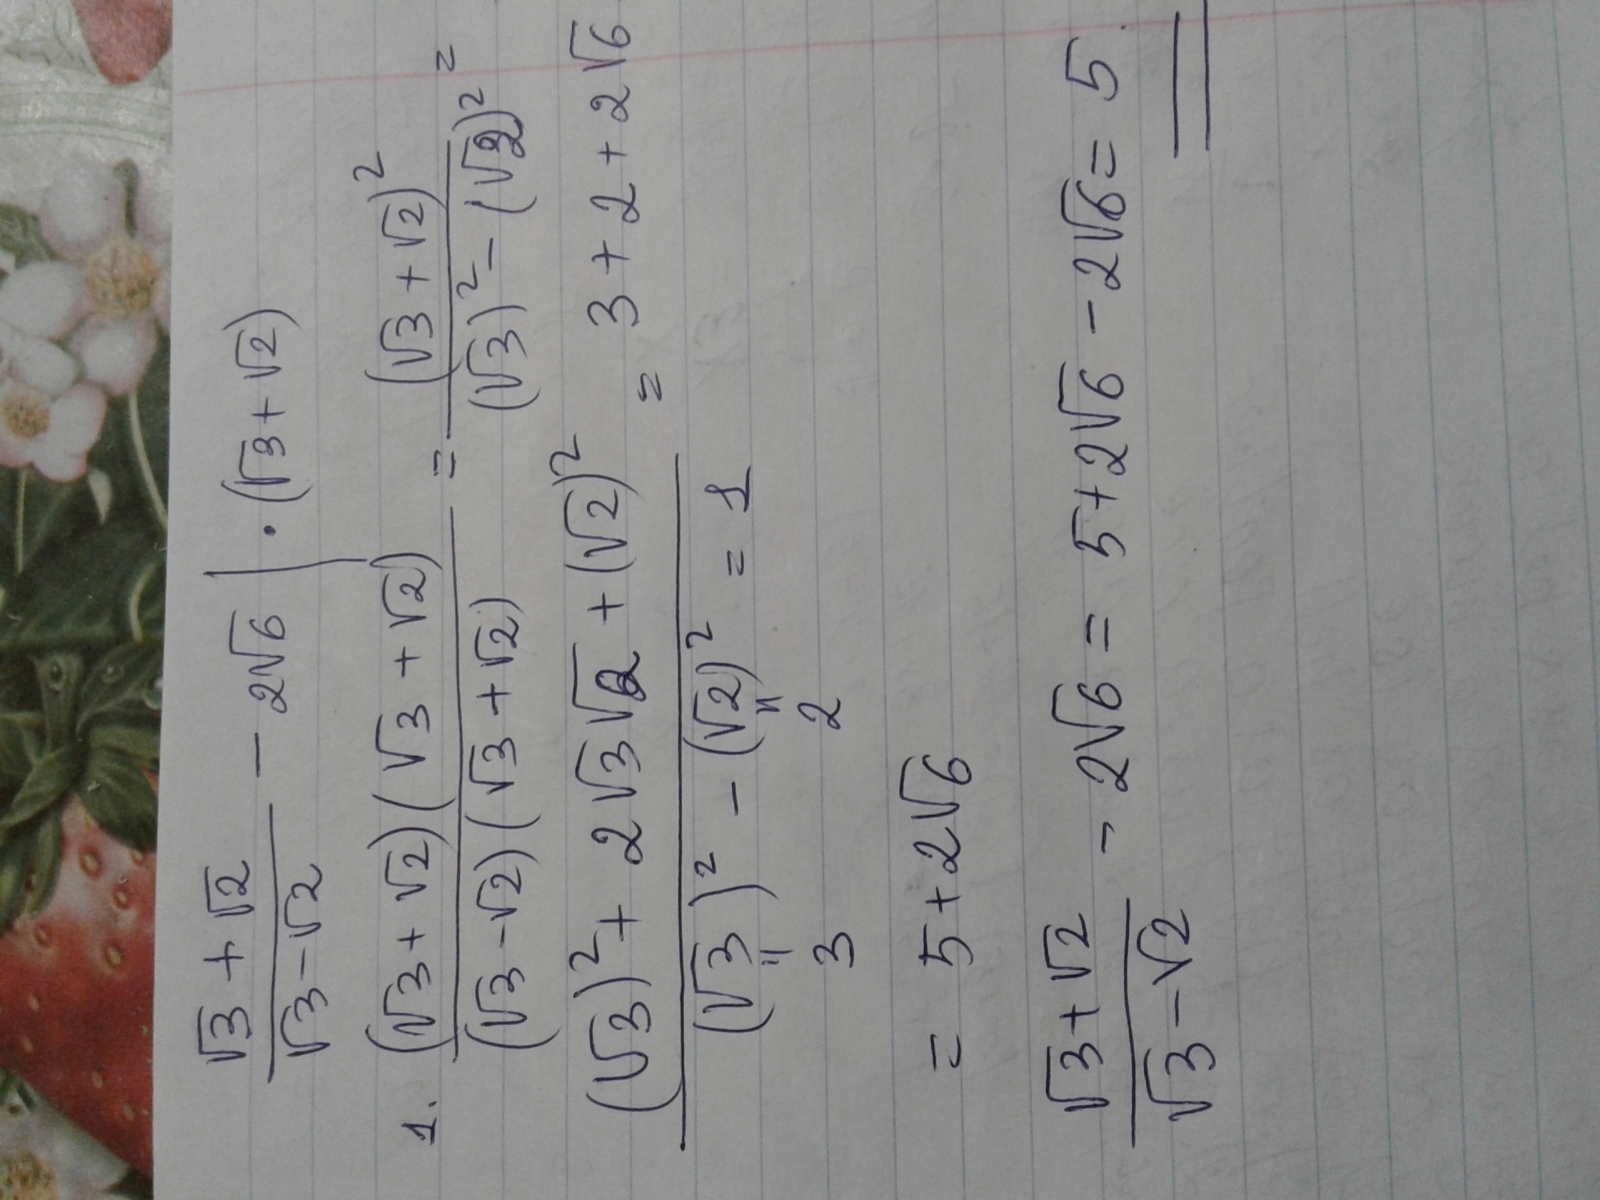 (√3+√2)/(√3−√2) − 2√6 | · (√3+√2)
1. ((√3+√2)(√3+√2))/((√3−√2)(√3+√2)) = (√3+√2)²/((√3)²−(√2)²) =
((√3)²+2√3√2+(√2)²)/((√3)²−(√2)²) = 3+2+2√6
= 1
" "
3 2
= 5+2√6
(√3+√2)/(√3−√2) − 2√6 = 5+2√6−2√6 = 5.